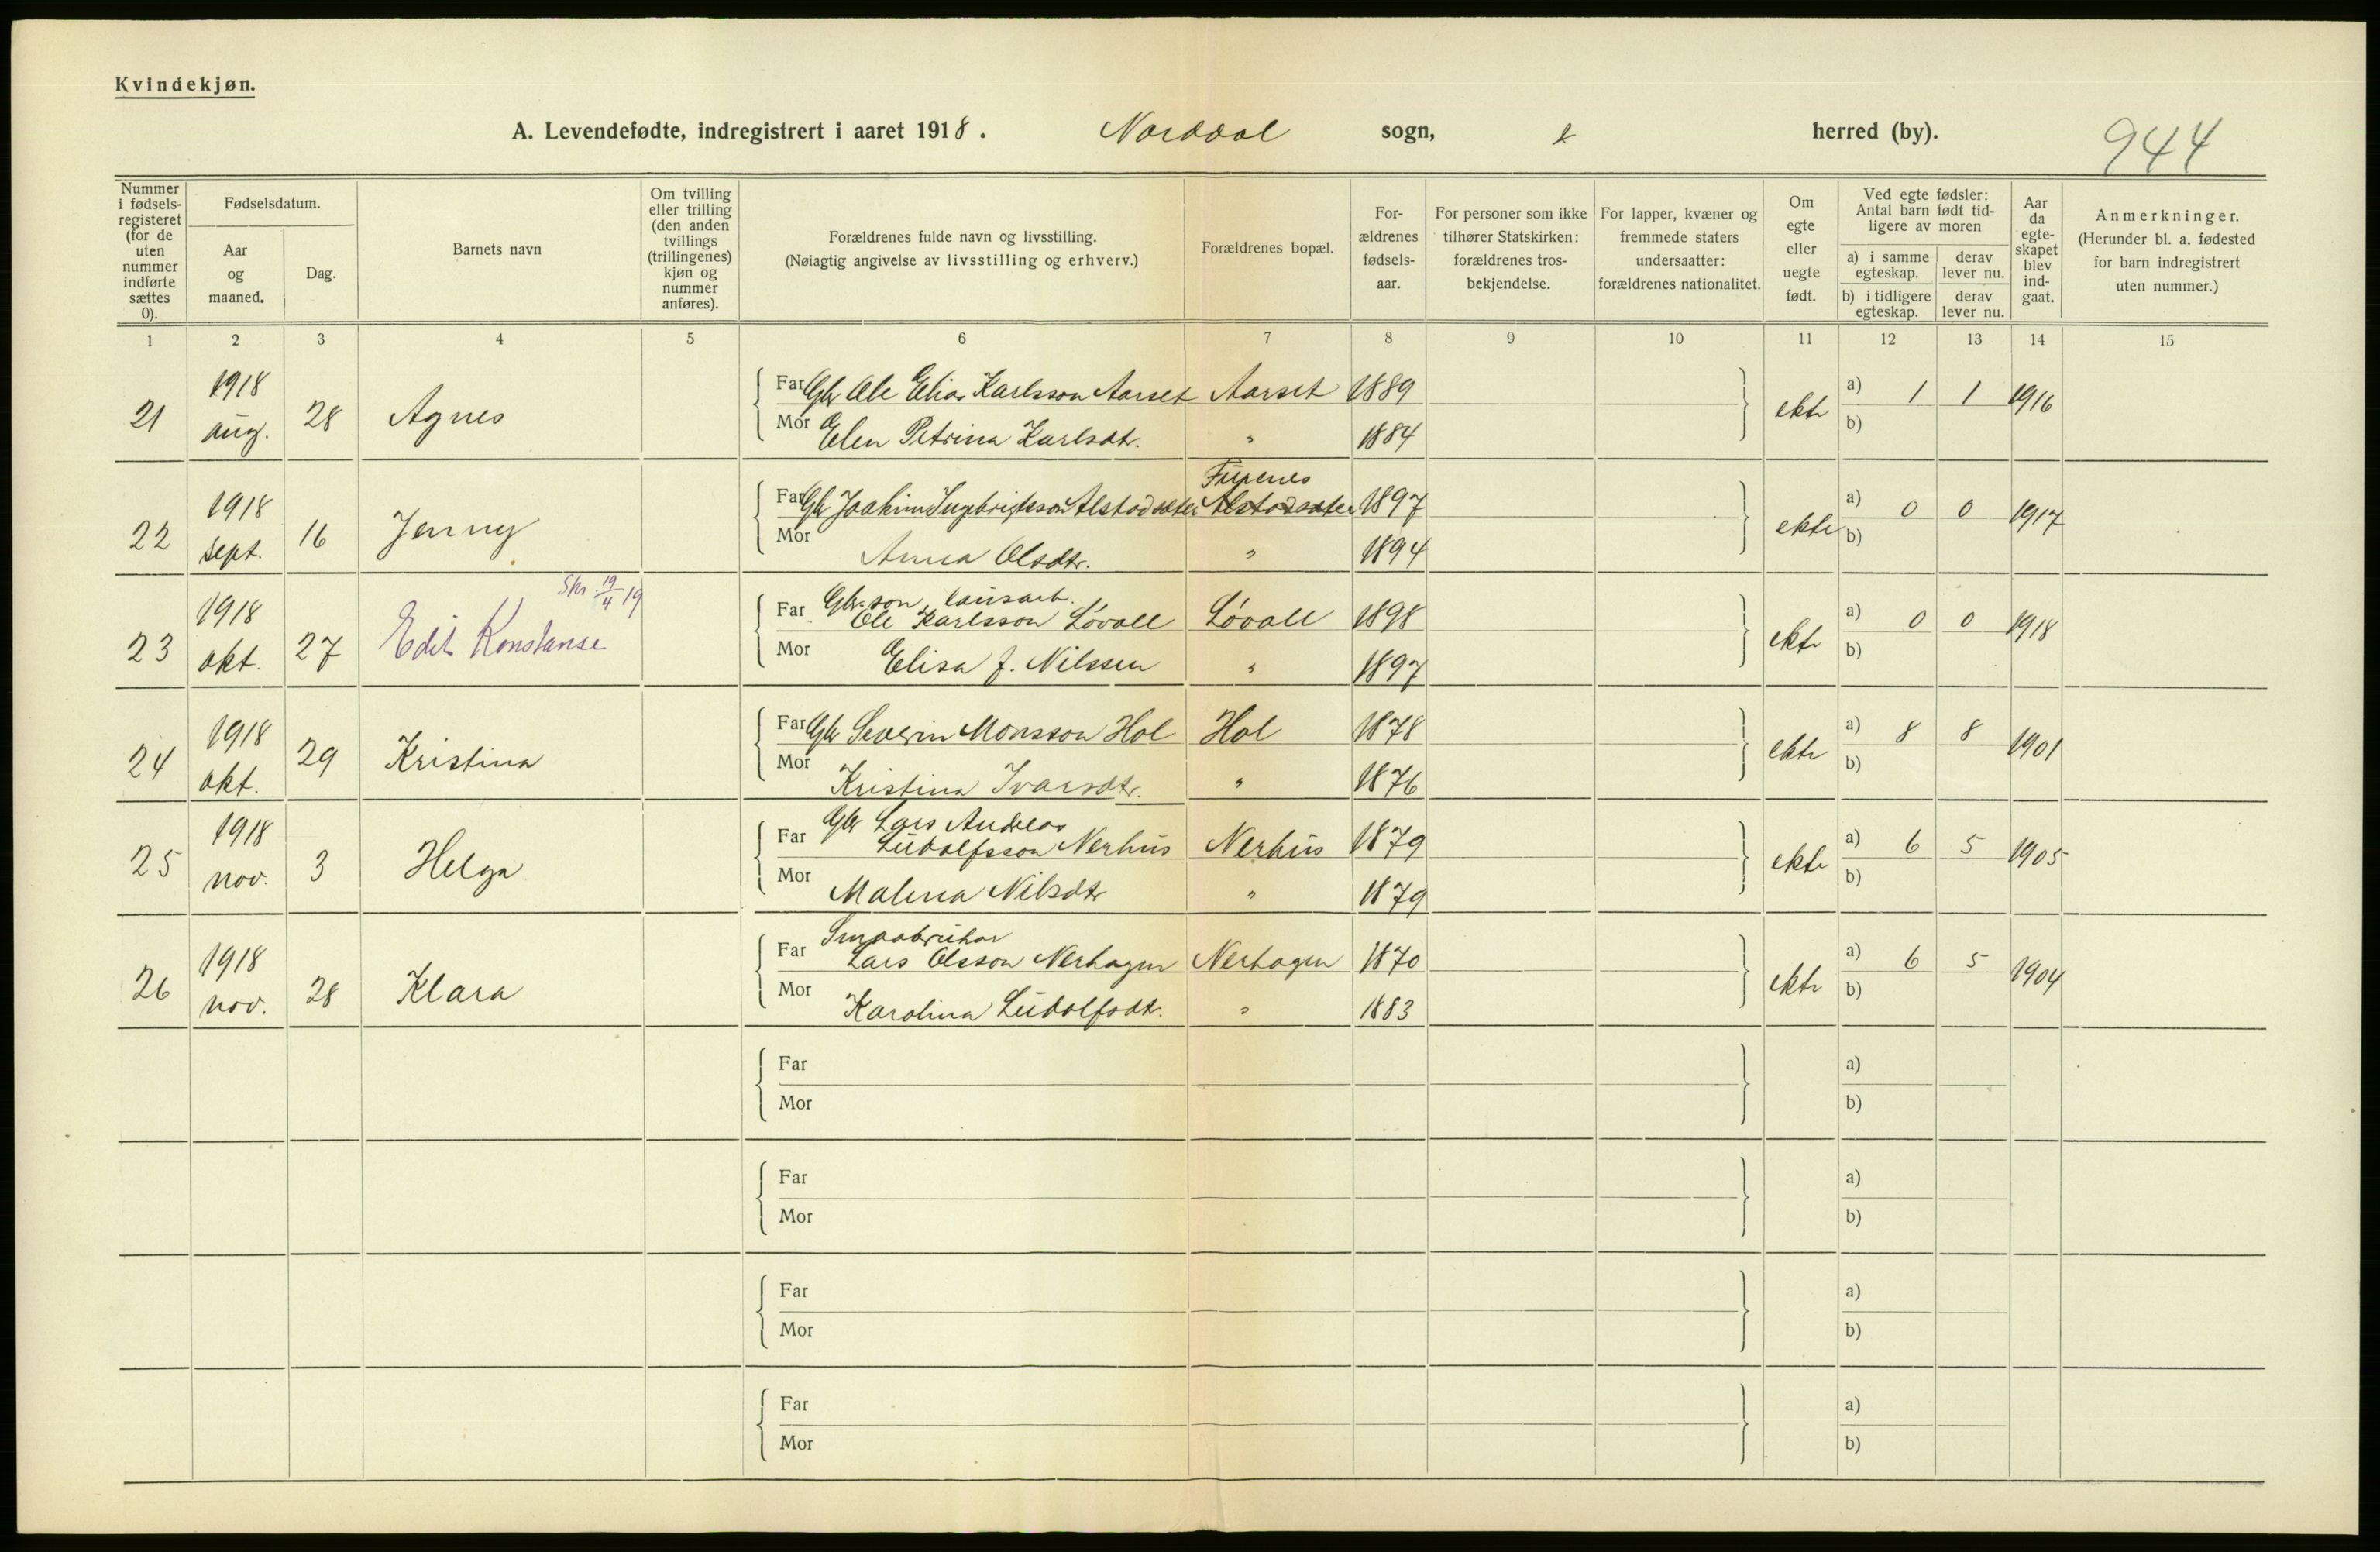 Kvindekjøn.
A. Levendefødte, indregistrert i aaret 1918. Norddal sogn, herred (by). 944
Nummer i fødselsregisteret (for de uten nummer indførte sættes 0).
Fødselsdatum.
Aar og maaned.
Dag.
Barnets navn
Om tvilling eller trilling (den anden tvillings (trillingenes) kjøn og nummer anføres).
Forældrenes fulde navn og livsstilling.
(Nøiagtig angivelse av livsstilling og erhverv.)
Forældrenes bopæl.
Forældrenes fødselsaar.
For personer som ikke tilhører Statskirken: forældrenes trosbekjendelse.
For lapper, kvæner og fremmede staters undersaatter: forældrenes nationalitet.
Om egte eller uegte født.
Ved egte fødsler: Antal barn født tidligere av moren
a) i samme egteskap. derav lever nu.
b) i tidligere egteskap. derav lever nu.
Aar da egteskapet blev indgaat.
Anmerkninger.
(Herunder bl. a. fødested for barn indregistrert uten nummer.)
1 2 3 4 5 6 7 8 9 10 11 12 13 14 15
21 1918 aug. 28 Agnes Far Gbr Ole Elias Karlsson Aarset Aarset 1889 ekte a) 1 1 1916
Mor Elen Petrina Karlsdt. " 1884 b)
22 1918 sept. 16 Jenny Far Gbr Joakim Ingebrigtsson Alstadsæter Alstadsæter Furenes 1897 ekte a) 0 0 1917
Mor Anna Olsdtr. " 1894 b)
Skr. 19/4 19
23 1918 okt. 27 Edit Konstanse Far Gbr.son, lausarb. Ole Karlsson Løvoll Løvoll 1898 ekte a) 0 0 1918
Mor Elisa J. Nilssen " 1897 b)
24 1918 okt. 29 Kristina Far Gbr Severin Monsson Hol Hol 1878 ekte a) 8 8 1901
Mor Kristina Ivarsdtr. " 1876 b)
25 1918 nov. 3 Helga Far Gbr Lars Andreas Ludolfsson Nerhus Nerhus 1879 ekte a) 6 5 1905
Mor Malena Nilsdtr " 1879 b)
26 1918 nov. 28 Klara Far Smaabrukar Lars Olsson Nerhagen Nerhagen 1870 ekte a) 6 5 1904
Mor Karolina Ludolfsdt. " 1883 b)
Far a)
Mor b)
Far a)
Mor b)
Far a)
Mor b)
Far a)
Mor b)